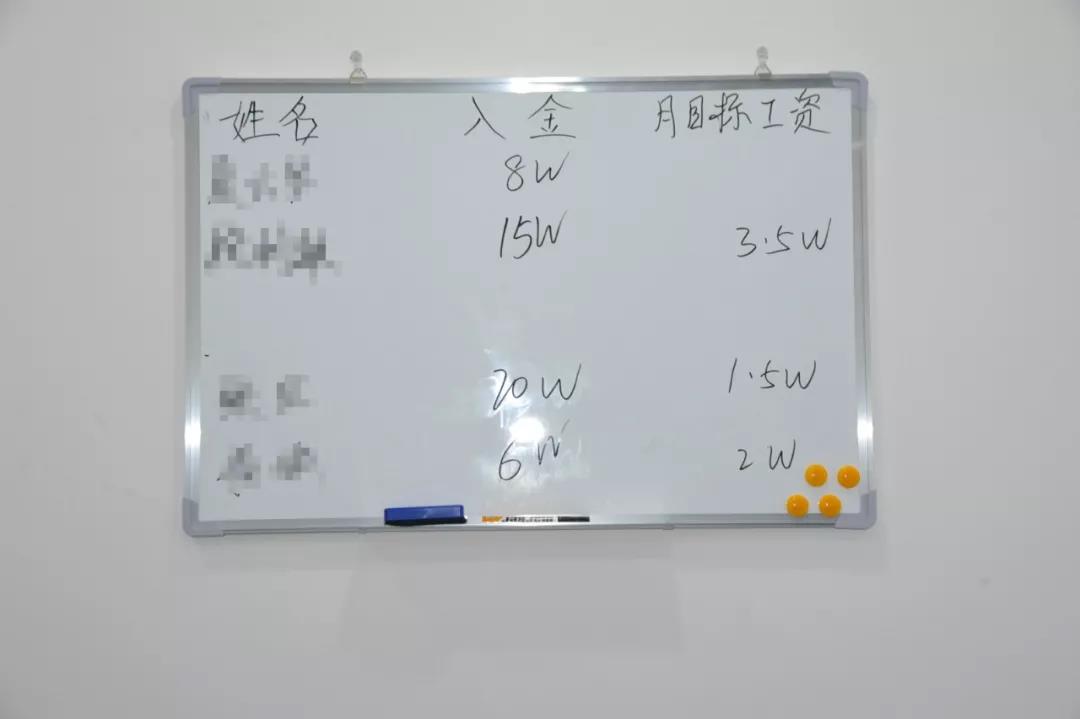 姓名 入金 月目标工资
8W
15W 3.5W
20W 1.5W
6W 2W